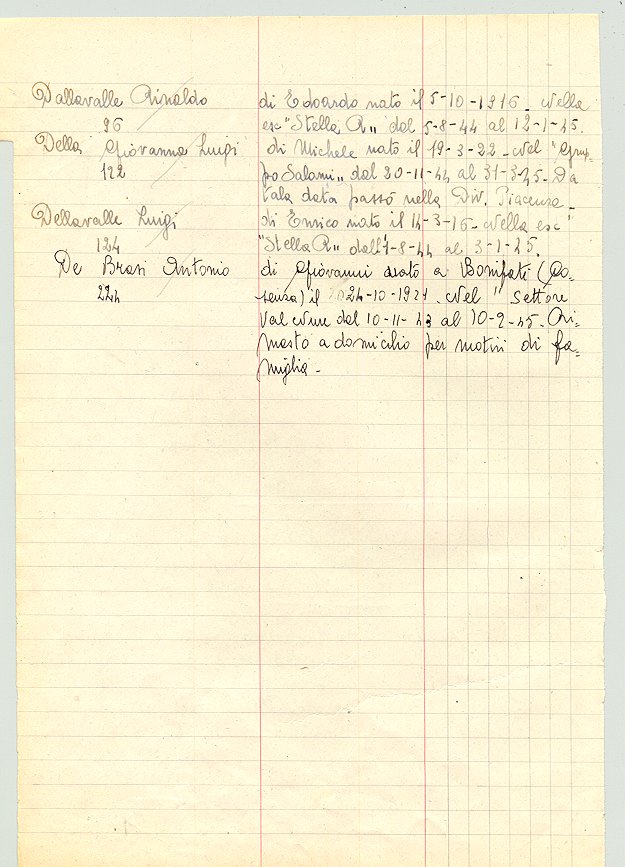 Dallavalle Rinaldo di Edoardo nato il 5-10-1916. Nella
96 esc "Stella R„ dal 5-8-44 al 12-1-45.
Della Giovanna Luigi di Michele nato il 19-3-22. Nel "Grup=
122 po Salami„ dal 20-11-44 al 31-3-45. Da
tala data passò nella Div. Piacenza.
Dellavalle Luigi di Enrico nato il 14-3-16. Nella esc"
124 "Stella R„ dall' 1-8-44 al 3-1-45.
De Brasi Antonio di Giovanni nato a Bonifati (Co=
224 senza) il 24-10-1921. Nel " Settore
Val Nure dal 10-11-43 al 10-2-45. Ri=
masto a domicilio per motivi di fa=
miglia.